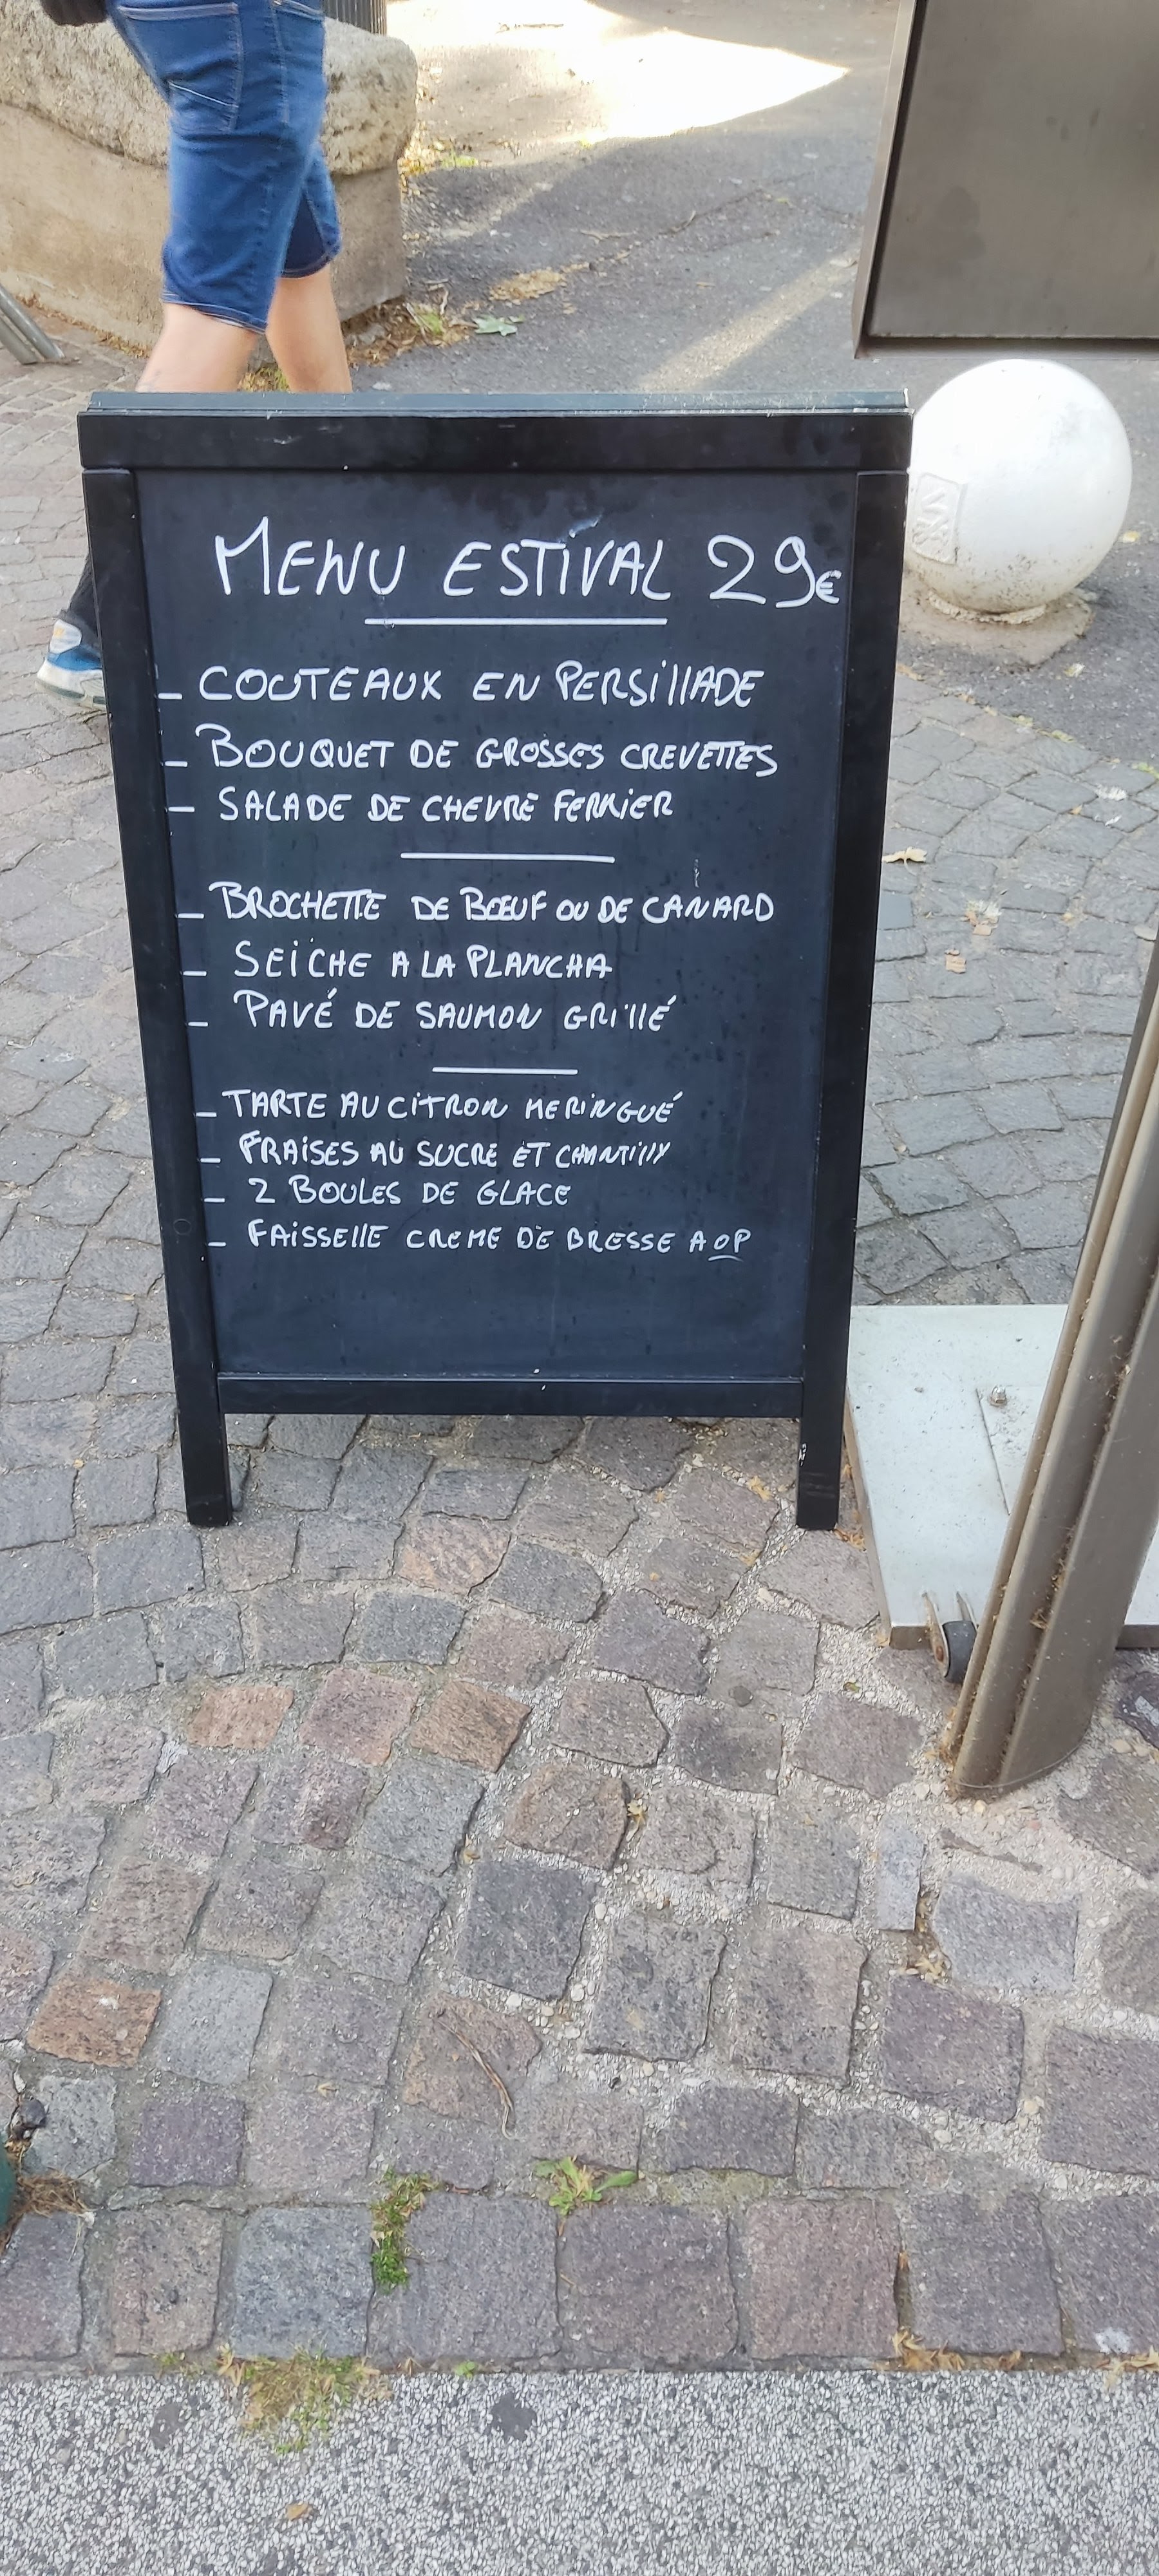 MENU ESTIVAL 29€
_ COUTEAUX EN PERSILLADE
_ BOUQUET DE GROSSES CREVETTES
_ SALADE DE CHEVRE FERMIER
_ BROCHETTE DE BŒUF OU DE CANARD
_ SEICHE A LA PLANCHA
_ PAVÉ DE SAUMON GRILLÉ
_ TARTE AU CITRON MERINGUÉ
_ FRAISES AU SUCRE ET CHANTILLY
_ 2 BOULES DE GLACE
_ FAISSELLE CREME DE BRESSE AOP